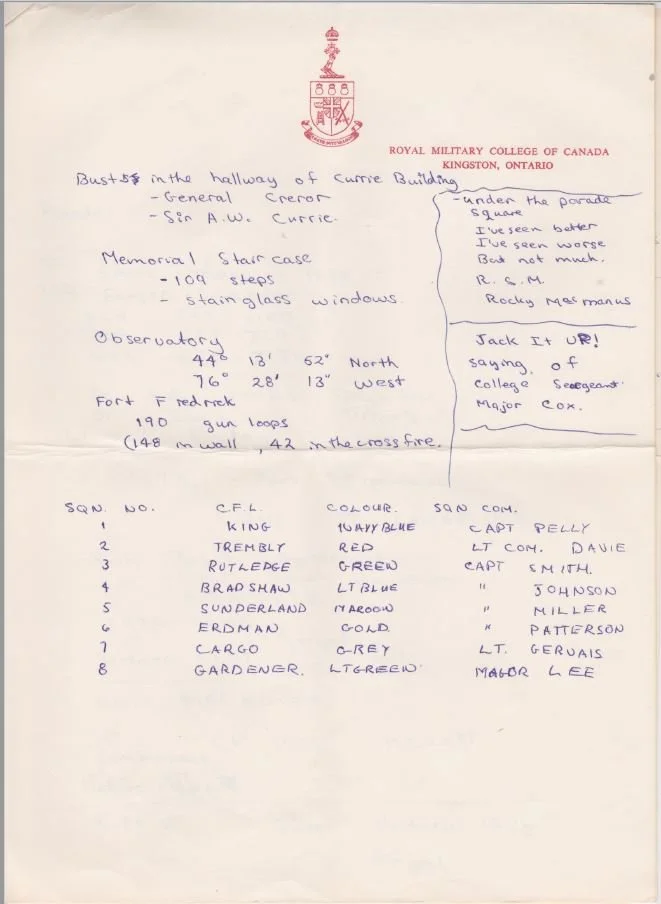 ROYAL MILITARY COLLEGE OF CANADA
KINGSTON, ONTARIO
Busts in the hallway of Currie Building
- General Creror
- Sir A.W. Currie.
Memorial Stair case
- 109 steps
- stain glass windows
Observatory
44° 13' 52" North
76° 28' 13" West
Fort Fredrick
190 gun loops
(148 in wall, 42 in the cross fire.
- under the parade
square
I've seen better
I've seen worse
But not much.
R. S. M.
Rocky McManus
Jack It UP!
saying of
College Seargeant
Major Cox.
SQN. NO. C.F.L. COLOUR. SQN COM.
1 KING NAVY BLUE CAPT PELLY
2 TREMBLY RED LT COM. DAVIE
3 RUTLEDGE GREEN CAPT SMITH.
4 BRADSHAW LT BLUE " JOHNSON
5 SUNDERLAND MAROON " MILLER
6 ERDMAN GOLD " PATTERSON
7 CARGO GREY LT. GERVAIS
8 GARDENER. LT GREEN MAJOR LEE